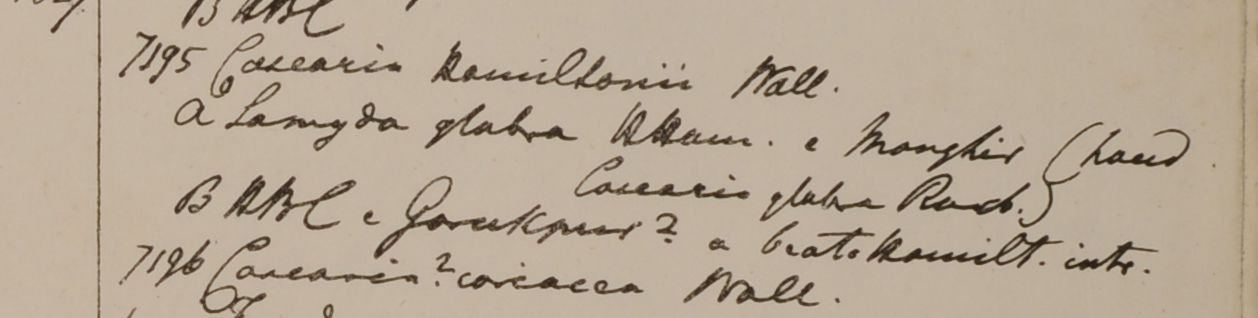 B HBC
7195 Casearia Hamiltonii Wall.
a Samyda glabra HHam. e Monghir (haud
Casearia glabra Roxb.)
B HBC e Gorukpur? a beato Hamilt. intr.
7196 Casearia? coriacea Wall.